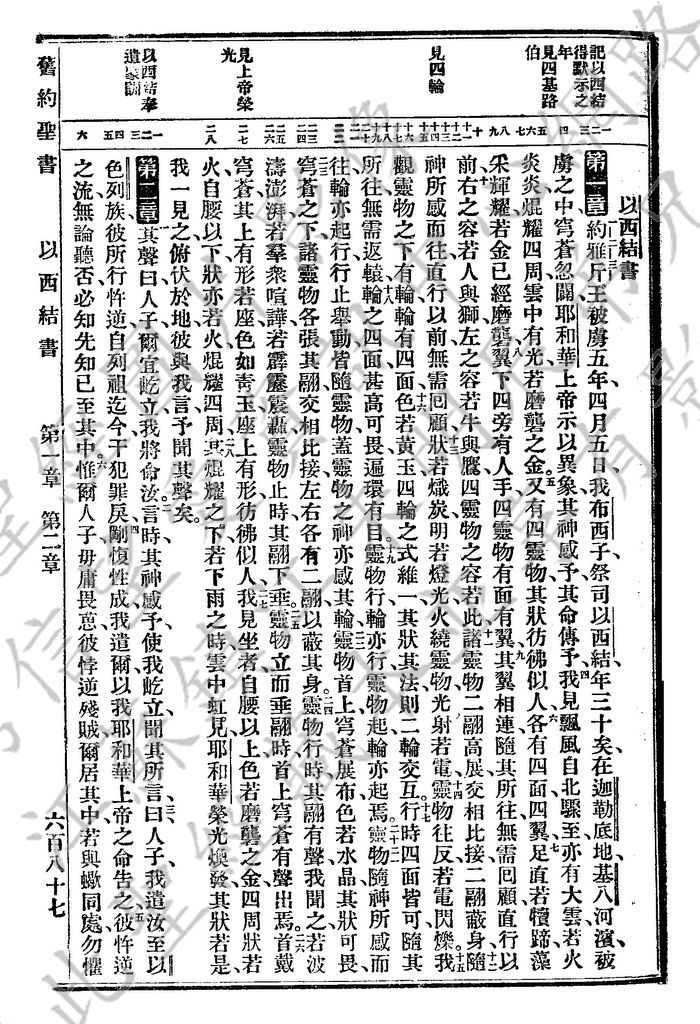 以西結書
第一章 約雅斤王被虜五年四月五日我布西子祭司以西結年三十矣在迦勒底地基八河濱被
虜之中穹蒼忽闢耶和華上帝示以異象其神感予其命傳予我見飄風自北驟至亦有大雲若火
炎炎焜耀四周雲中有光若磨礱之金又有四靈物其狀彷彿似人各有四面四翼足直若犢蹄藻
采輝耀若金已經磨礱翼下四旁有人手四靈物有面有翼其翼相連隨其所往無需回顧直行以
前右之容若人與獅左之容若牛與鷹四靈物之容若此諸靈物二翮高展交相比接二翮蔽身隨
神所感而往直行以前無需回顧狀若熾炭明若燈光火繞靈物光射若電靈物往反若電閃爍我
觀靈物之下有輪輪有四面色若黃玉四輪之式維一其狀其法則二輪交互行時四面皆可隨其
所往無需返轅輪之四面甚高可畏遍環有目靈物行輪亦行靈物起輪亦起焉靈物隨神所感而
往輪亦起行行止舉動皆隨靈物蓋靈物之神亦感其輪靈物首上穹蒼展布色若水晶其狀可畏
穹蒼之下諸靈物各張其翮交相比接左右各有二翮以蔽其身靈物行時其翮有聲我聞之若波
濤澎湃若羣衆喧譁若霹靂震轟靈物止時其翮下垂靈物立而垂翮時首上穹蒼有聲出焉首戴
穹蒼其上有形若座色如靑玉座上有形彷彿似人我見坐者自腰以上色若磨礱之金四周狀若
火自腰以下狀亦若火焜耀四周其焜耀之下若下雨之時雲中虹見耶和華榮光煥發其狀若是
我一見之俯伏於地彼與我言予聞其聲矣
第二章 其聲曰人子爾宜屹立我將命汝言時其神感予使我屹立聞其所言曰人子我遣汝至以
色列族彼所行忤逆自列祖迄今干犯罪戾剛愎性成我遣爾以我耶和華上帝之命告之彼忤逆
之流無論聽否必知先知已至其中惟爾人子毋庸畏葸彼悖逆殘賊爾居其中若與蠍同處勿懼
記以西結
得默示之
年
見四基路
伯
見四輪
見上帝榮
光
以西結奉
遣
舊約聖書 以西結書 第一章 第二章 六百八十七